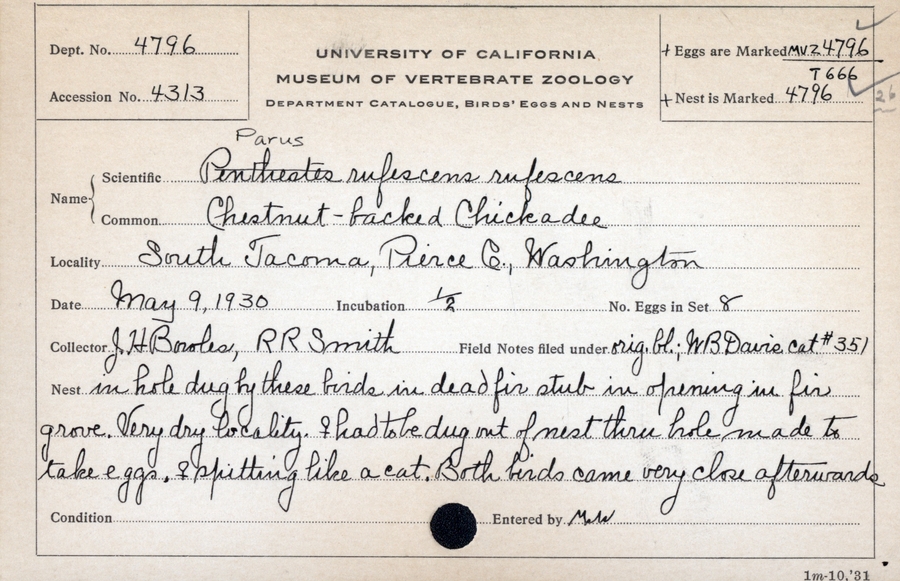 Dept. No. 4796
Accession No. 4313
UNIVERSITY OF CALIFORNIA
MUSEUM OF VERTEBRATE ZOOLOGY
DEPARTMENT CATALOGUE, BIRDS' EGGS AND NESTS
+ Eggs are Marked MVZ 4796
T666
+ Nest is Marked 4796
26
Parus
Name { Scientific Penthestes rufescens rufescens
Common Chestnut-backed Chickadee
Locality South Tacoma, Pierce Co., Washington
Date May 9, 1930 Incubation 1/2 No. Eggs in Set 8
Collector J H Bowles, R R Smith Field Notes filed under orig. bl.; W B Davis cat # 351
Nest in hole dug by these birds in dead fir stub in opening in fir
grove. Very dry locality. ♀ had to be dug out of nest thru hole made to
take eggs, ♀ spitting like a cat. Both birds came very close afterwards
Condition Entered by
1m-10,'31